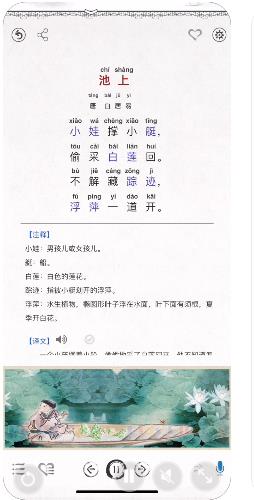 chí shàng
池 上
táng bái jū yì
唐 白 居 易
xiǎo wá chēng xiǎo tǐng
小 娃 撑 小 艇，
tōu cǎi bái lián huí
偷 采 白 莲 回。
bù jiě cáng zōng jì
不 解 藏 踪 迹，
fú píng yí dào kāi
浮 萍 一 道 开。
【注释】
小娃：男孩儿或女孩儿。
艇：船。
白莲：白色的莲花。
踪迹：指被小艇划开的浮萍。
浮萍：水生植物，椭圆形叶子浮在水面，叶下面有须根，夏
季开白花。
【译文】